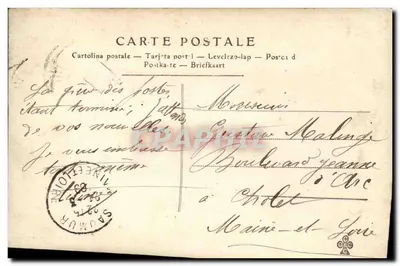 CARTE POSTALE
Cartolina postale — Tarjeta postal — Levelezo-lap — Postcard
Postkarte — Briefkaart
La grève des postes
étant terminée j'attends
de vos nouvelles
Je vous embrasse
Monsieur
Gustave Malinge
Boulevard Jeanne
d'Arc
Cholet
Maine-et-Loire
SAUMUR
MAINE-ET-LOIRE